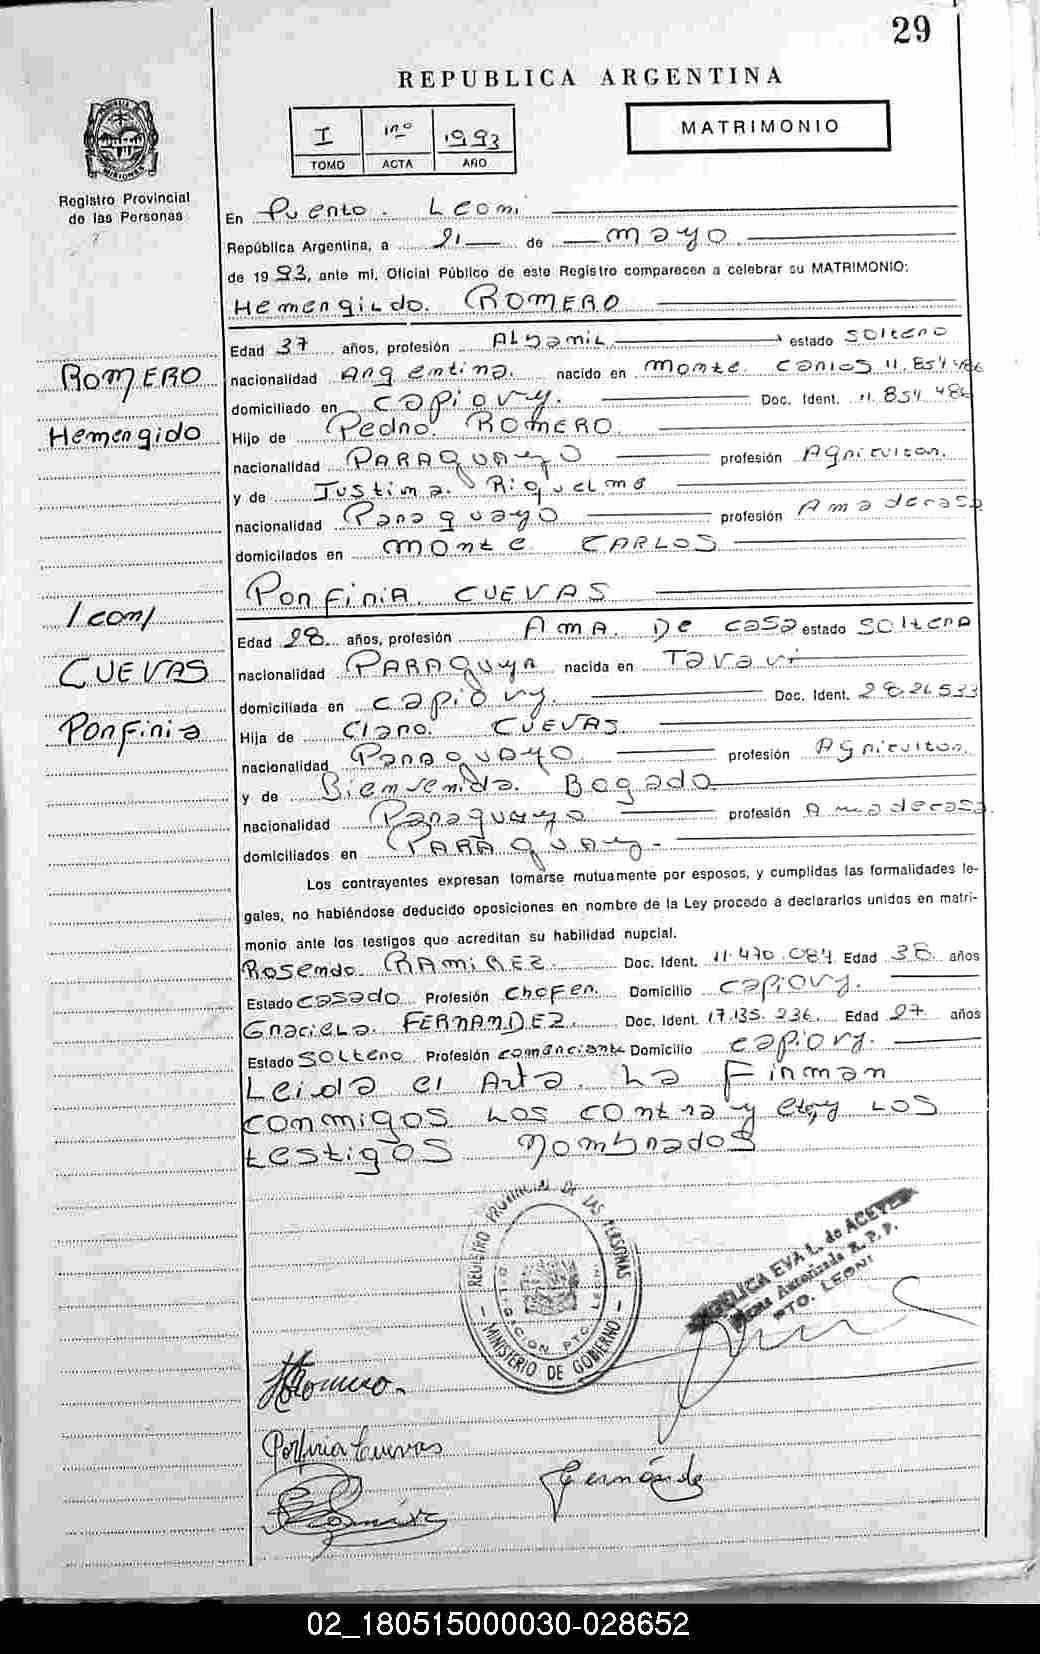 29
REPUBLICA ARGENTINA
I 1993
TOMO ACTA AÑO
MATRIMONIO
Registro Provincial
de las Personas
En Puento Leoni
República Argentina, a 21 de mayo
de 1993, ante mí, Oficial Público de este Registro comparecen a celebrar su MATRIMONIO:
Hemengildo. ROMERO
Edad 37 años, profesión Albamil estado Solteno
ROMERO
nacionalidad Angentina. nacido en Monte Canlos 11.854.486
domiciliado en Capiovy. Doc. Ident. 11.854.486
Hemengido
Hijo de Pedno ROMERO
nacionalidad PARAQUAYO profesión Agniculton.
y de Justina. Riquelme
nacionalidad Panaguayo profesión Ama decasa
domicilados en monte CARLOS
Ponfinia. CUEVAS
/con/
Edad 28 años, profesión AMA. De casa estado Soltena
CUEVAS
nacionalidad PARAguya nacida en Tavaví
domiciliada en Capiovy. Doc. Ident. 2826533
Ponfinia
Hija de Clano. CUEVAS
nacionalidad Panaguayo profesión Agniculton.
y de Bienvenida. Bogado
nacionalidad Panaguayo profesión Amadecasa.
domiciliados en PARAguay.
Los contrayentes expresan tomarse mutuamente por esposos, y cumplidas las formalidades le-
gales, no habiéndose deducido oposiciones en nombre de la Ley procedo a declararlos unidos en matri-
monio ante los testigos que acreditan su habilidad nupcial.
Rosendo RAMIREZ. Doc. Ident. 11.470.084 Edad 38 años
Estado Casado Profesión Chofen. Domicilio Capiovy.
Gnaciela. FERNANDEZ. Doc. Ident. 17.135.236. Edad 27 años
Estado Solteno Profesión comenciante Domicilio Capiovy.
Leida el Acta. La Finman
conmigos Los contnayentes y Los
testigos Nombnados
REGISTRO PROVINCIAL DE LAS PERSONAS
DELEGACION PTO. LEONI
MINISTERIO DE GOBIERNO
EVA L. de ACEVED
Autorizada R. P. P.
PTO. LEONI
HRomero.
Porfiria Cuevas
Fernánde
02_180515000030-028652